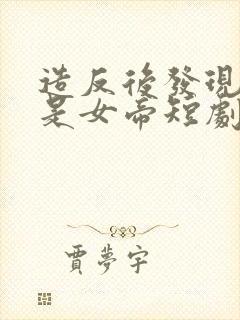 造反後發現
是女帝短劇
賈夢宇